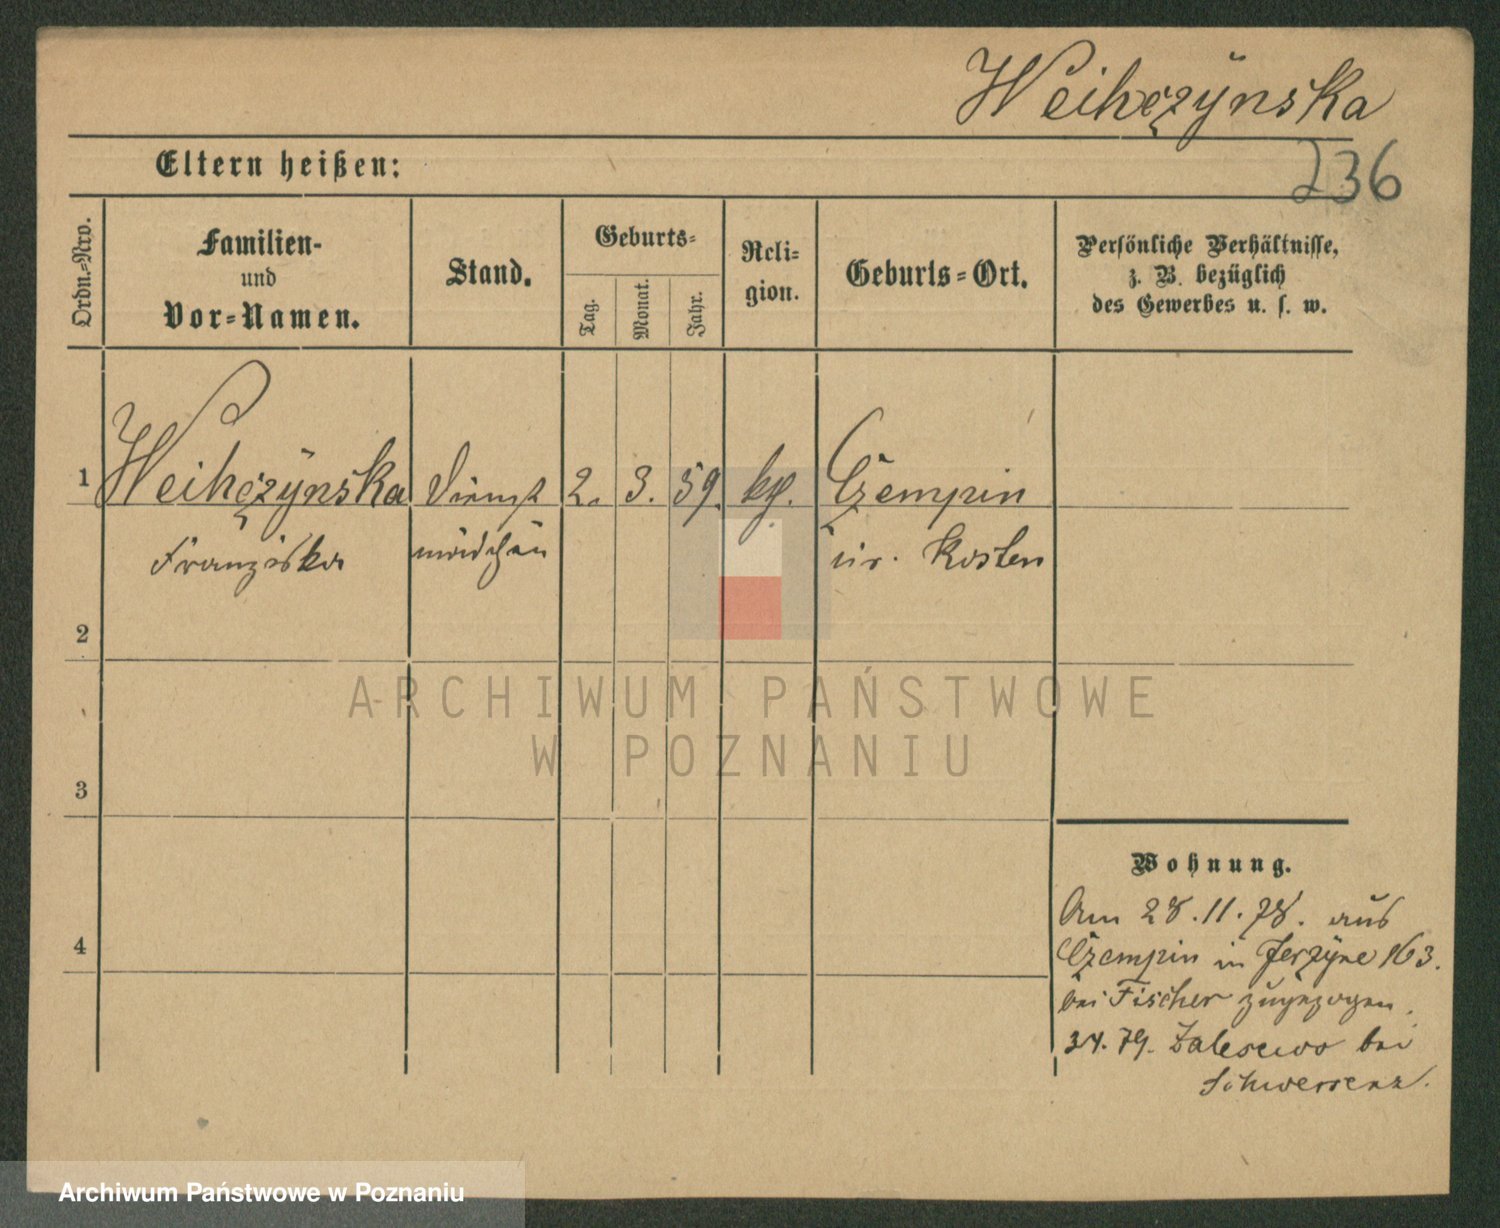 Weihczÿnska
236
Eltern heißen:
Ordn.-Nro.
Familien-
und
Vor-Namen.
Stand.
Geburts-
Tag.
Monat.
Jahr.
Reli-
gion.
Geburts-Ort.
Persönliche Verhältnisse,
z. B. bezüglich
des Gewerbes u. s. w.
1
Weihczÿnska Dienst 2. 3. 59. kḡ. Czempin
Franziska mädchen kr. Kosten
2
3
4
Wohnung.
Am 28.11.78. aus
Czempin in Jerzÿne 163.
bei Fischer zugezogen.
79. Zalesewo bei
Schwersenz.
ARCHIWUM PAŃSTWOWE
W POZNANIU
Archiwum Państwowe w Poznaniu